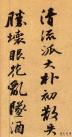 清流派大朴初散失
勝壞眼花亂墜酒